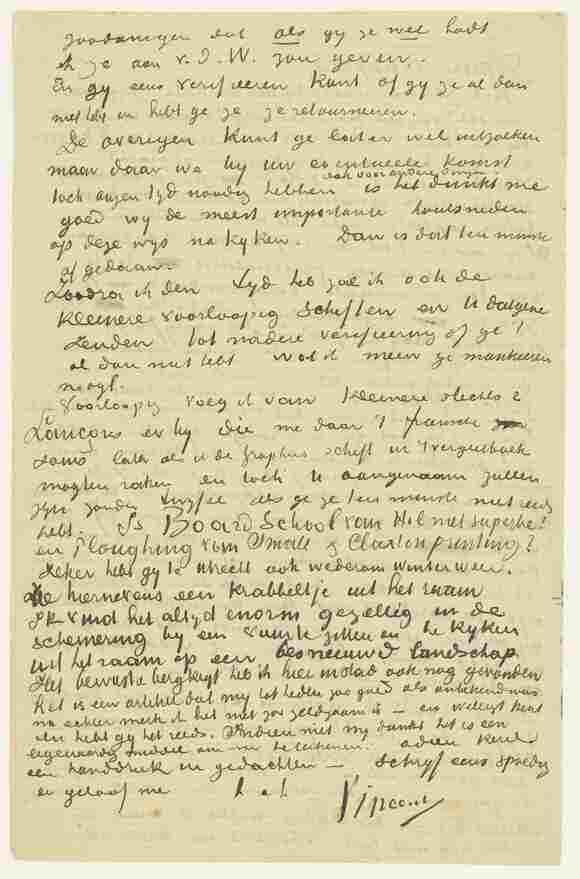 zoodanigen dat als gy ze wel hadt
ik ze aan v. d. W. zou geven.
En gy eens verifieeren kunt of gy ze al dan
niet hebt en hebt ge ze ze retourneeren.
De overigen kunt ge later wel uitzoeken
maar daar we by uw eventueele komst
toch augen tyd noodig hebben ook voor andere dingen is het dunkt me
goed wy de meest importante houtsneden
op deze wys nakyken. Dan is dat ten minste
afgedaan.
Zoodra ik den tyd heb zal ik ook de
kleinere voorloopig schiften en U datgene
zenden tot nadere verifieering of ge 't
al dan niet hebt wat ik meen ze mankeeren
mogt.
Voorloopig voeg ik van kleinere slechts 2
Lançons er by die me daar 't fransche
later als U de Graphics schift in 't vergeetboek
mogten raken en toch U aangenaam zullen
zyn zonder twyfel als ge ze ten minste niet reeds
hebt. Is Board School van Hol niet superbe?
en Ploughing van Small & Claxton printing?
Zeker hebt gy te Utrecht ook wederom winterweer.
hiernevens een krabbeltje uit het raam
Ik vind het altyd enorm gezellig in de
schemering by een vuurtje zitten en te kyken
uit het raam op een besneeuwd landschap
Het bewuste bergkryt heb ik hier in stad ook nog gevonden
het is een artikel dat my tot heden zoo goed als onbekend was
nu echter merk ik het niet zoo zeldzaam is – en welligt kent
en hebt gy het reeds. Indien niet my dunkt het is een
eigenaardig middel om mee te teekenen. adieu kerel
een handdruk in gedachten — Schryf eens spoedig
en geloof me t. à t. Vincent